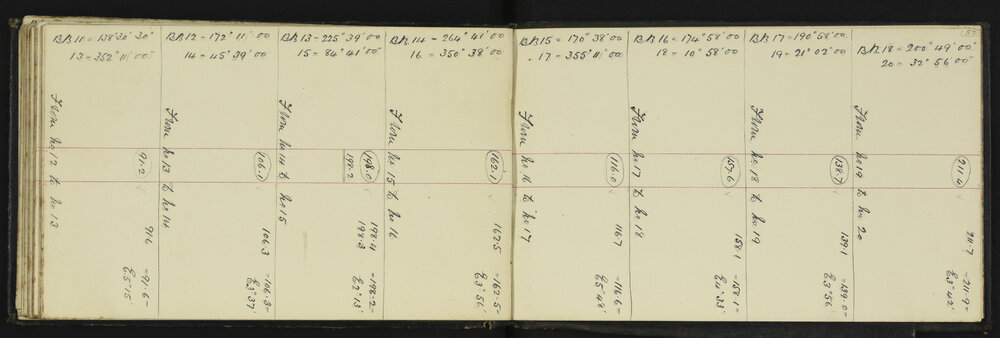 59
BB 11 = 138° 30' 30"
13 = 352° 11' 00"
From No 12 to No 13
91.2
916
-91.6-
E 5° 15'
BB 12 - 172° 11' 00
14 = 45° 39' 00
From No 13 to No 14
106.1
106.3
-106.3-
E 3° 37'
BB 13 - 225° 39' 00
15 = 84° 41' 00"
From No 14 to No 15
198.0
198.2
198.4
198.3
-198.2-
E 2° 13'
BB 14 = 264° 41' 00
16 = 350° 38' 00
From No 15 to No 16
162.1
162.5
-162.5-
E 3° 56'
BB 15 = 170° 38' 00
17 = 355° 11' 00
From No 16 to No 17
116.0
116.7
-116.6-
E 5° 48'
BB 16 = 174° 58' 00
18 = 10° 58' 00
From No 17 to No 18
157.6
158.1
-158.1-
E 4° 33'
BB 17 - 190° 58' 00
19 = 21° 02' 00
From No 18 to No 19
138.7
139.1
-139.0-
E 3° 56'
BB 18 = 200° 49' 00"
20 = 32° 56' 00"
From No 19 to No 20
211.4
211.7
-211.9-
E 3° 42'